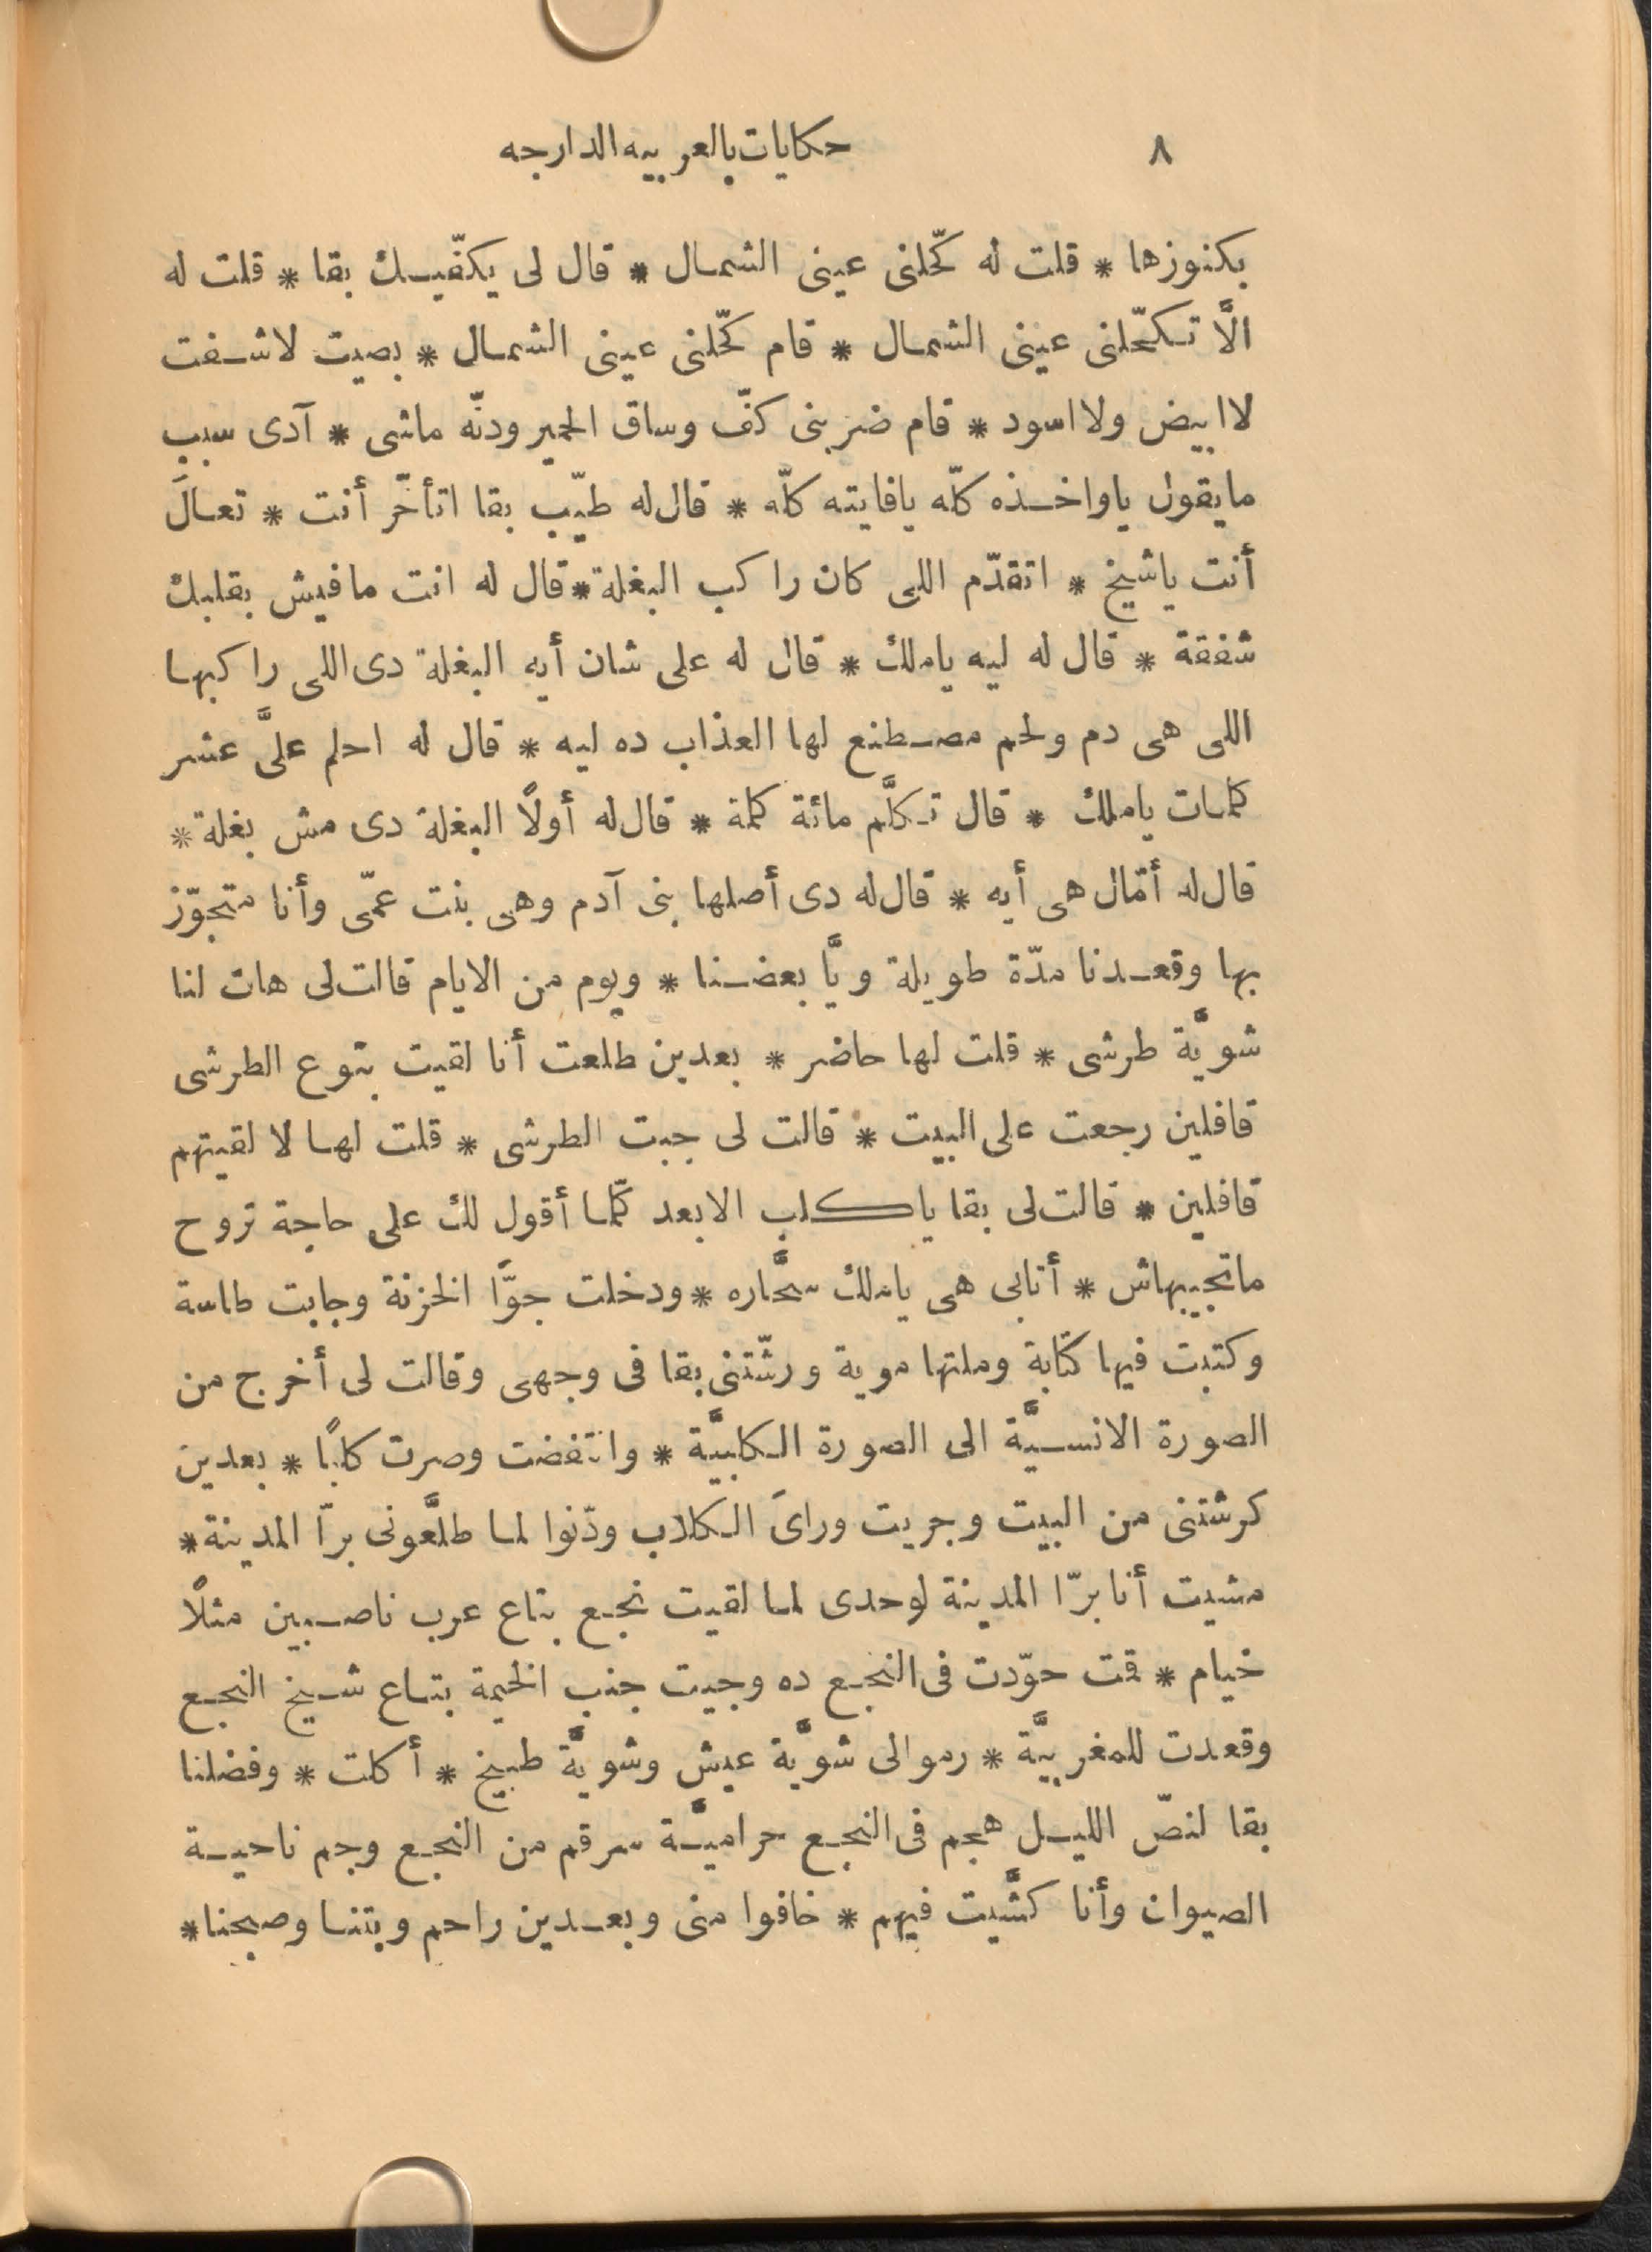 ٨ حكايات بالعربيه الدارجه
بكنوزها * قلت له كحّلنى عينى الشمال * قال لى يكفّيك بقا * قلت له
الَّا تكحّلنى عينى الشمال * قام كحّلنى عينى الشمال * بصيت لاشفت
لا ابيض ولا اسود * قام ضربنى كفّ وساق الحمير ودنّه ماشى * آدى سبب
مايقول ياواخذه كلّه يافايته كلّه * قال له طيّب بقا اتأخّر أنت * تعالَ
أنت ياشيخ * اتقدّم اللى كان راكب البغلة * قال له انت مافيش بقلبك
شفقة * قال له ليه ياملك * قال له على شان أيه البغلة دى اللى راكبها
اللى هى دم ولحم مصطنع لها العذاب ده ليه * قال له احلم علىَّ عشر
كلمات ياملك * قال تكلَّم مائة كلمة * قال له أولًا البغلة دى مش بغلة *
قال له أمّال هى أيه * قال له دى أصلها بنى آدم وهى بنت عمّى وأنا متجوّز
بها وقعدنا مدّة طويلة ويَّا بعضنا * ويوم من الايام قالت لى هات لنا
شويَّة طرشى * قلت لها حاضر * بعدين طلعت أنا لقيت بتوع الطرشى
قافلين رجعت على البيت * قالت لى جبت الطرشى * قلت لها لا لقيتهم
قافلين * قالت لى بقا ياكلب الابعد كلّما أقول لك على حاجة تروح
ماتجيبهاش * أتابى هى ياملك سحَّاره * ودخلت جوَّا الخزنة وجابت طاسة
وكتبت فيها كتابة وملتها موية ورشّتنى بقا فى وجهى وقالت لى أخرج من
الصورة الانسيَّة الى الصورة الكلبيَّة * وانتفضت وصرت كلبًا * بعدين
كرشتنى من البيت وجريت وراىَ الكلاب ودّنوا لما طلَّعونى برّا المدينة *
مشيت أنا برّا المدينة لوحدى لما لقيت نجع بتاع عرب ناصبين مثلًا
خيام * قمت حوّدت فى النجع ده وجيت جنب الخيمة بتاع شيخ النجع
وقعدت للمغربيَّة * رموا لى شويَّة عيش وشويَّة طبيخ * أكلت * وفضلنا
بقا لنصّ الليل هجم فى النجع حراميَّة سرقم من النجع وجم ناحية
الصيوان وأنا كشَّيت فيهم * خافوا منى وبعدين راحم وبتنا وصبحنا *